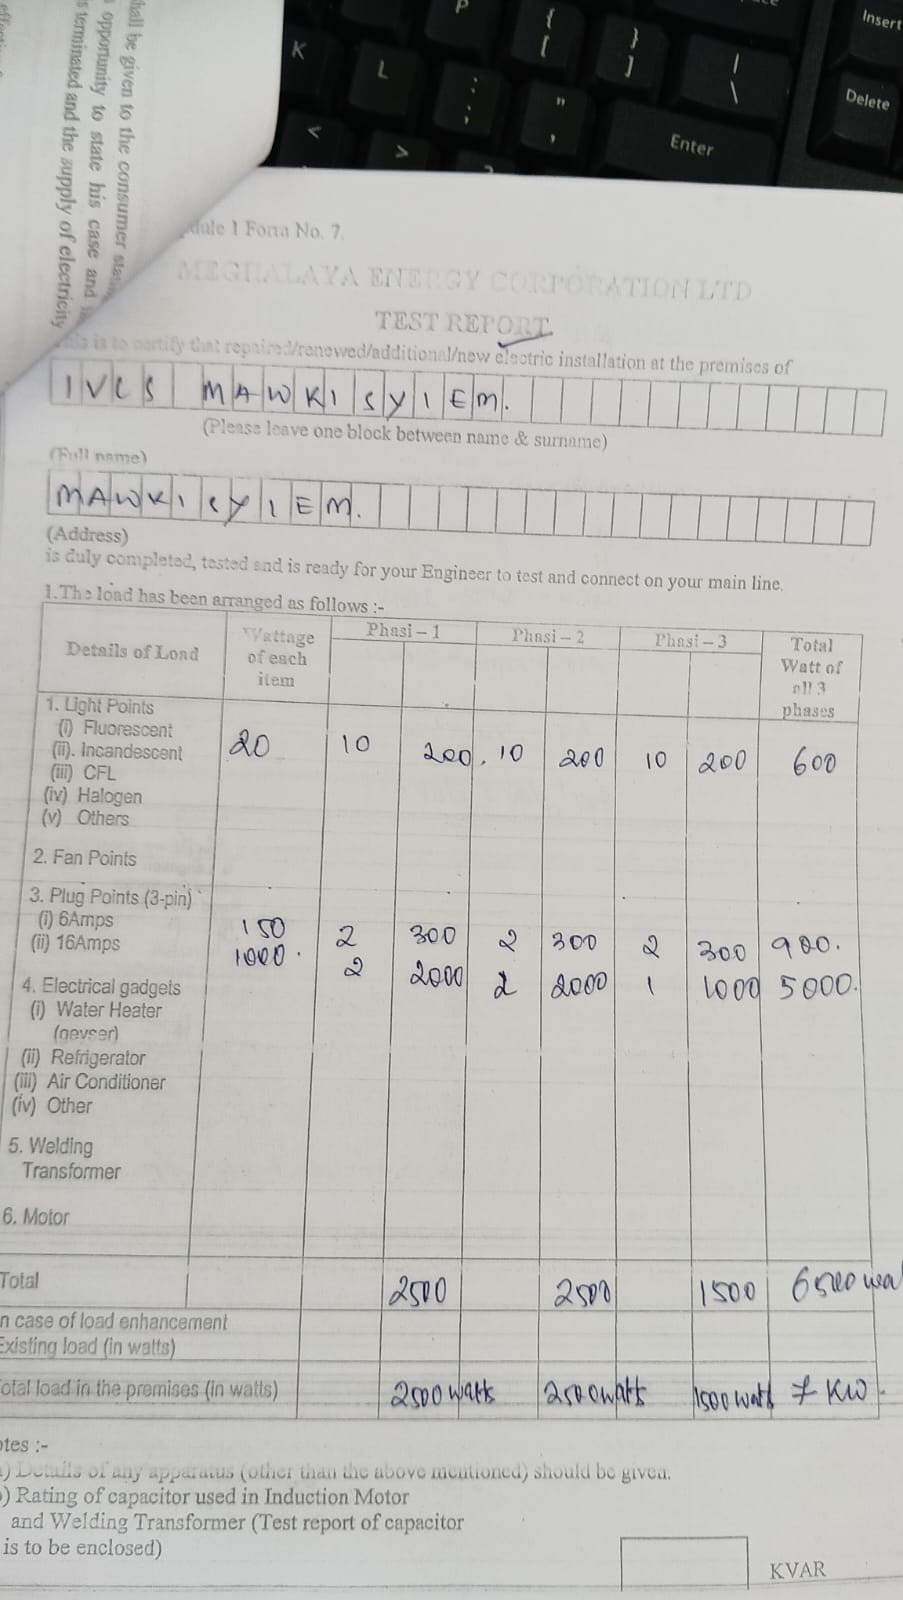 shall be given to the consumer
opportunity to state his case and
terminated and the supply of electricity
P
K
L
{
[
}
]
|
\
:
;
"
'
<
>
Insert
Delete
Enter
dule 1 Form No. 7.
MEGHALAYA ENERGY CORPORATION LTD
TEST REPORT
This is to certify that repaired/renewed/additional/new electric installation at the premises of
IVCS MAWKISYIEM.
(Please leave one block between name & surname)
(Full name)
MAWKISYIEM.
(Address)
is duly completed, tested and is ready for your Engineer to test and connect on your main line.
1.The load has been arranged as follows :-
Details of Load Wattage of each item Phasi – 1 Phasi – 2 Phasi – 3 Total Watt of all 3 phases
1. Light Points
(i) Fluorescent
(ii). Incandescent 20 10 200. 10 200 10 200 600
(iii) CFL
(iv) Halogen
(v) Others
2. Fan Points
3. Plug Points (3-pin)
(i) 6Amps 150 2 300 2 300 2 300 900.
(ii) 16Amps 1000. 2 2000 2 2000 1 1000 5000.
4. Electrical gadgets
(i) Water Heater
(geyser)
(ii) Refrigerator
(iii) Air Conditioner
(iv) Other
5. Welding
Transformer
6. Motor
Total 2500 2500 1500 6500 wa
n case of load enhancement
Existing load (in watts)
otal load in the premises (in watts) 2500 watts 2500 watts 1500 watt 7 KW.
otes :-
) Details of any apparatus (other than the above mentioned) should be given.
) Rating of capacitor used in Induction Motor
and Welding Transformer (Test report of capacitor
is to be enclosed)
KVAR